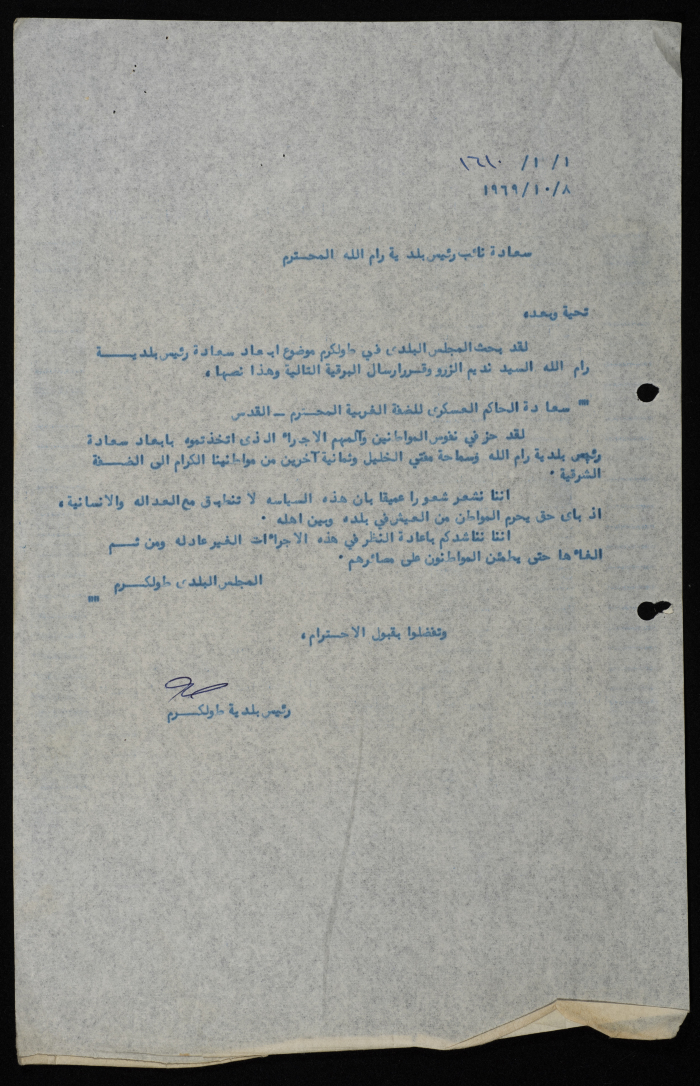 ١/ ١٠/ ١٦١٠
١٩٦٩/١٠/٨
سعادة نائب رئيس بلدية رام الله المحترم
تحية وبعده
لقد بحث المجلس البلدى في طولكرم موضوع ابعاد سعادة رئيس بلديــــة
رام الله السيد نديم الزرو وقرر ارسال البرقية التالية وهذا نصها ،
"" سعادة الحاكم العسكرى للضفة الغربية المحترم ــ القدس
لقد حز في نفوس المواطنين وآلمهم الاجراء الذى اتخذتموه بابعاد سعادة
رئيس بلدية رام الله وسماحة مفتي الخليل وثمانية آخرين من مواطنينا الكرام الى الضــفة
الشرقية ٠
اننا نشعر شعورا عميقا بان هذه السياسه لا تنطبق مع العداله والانسانية ،
اذ باى حق يحرم المواطن من العيش في بلده وبين اهله ٠
اننا نناشدكم باعادة النظر في هذه الاجراءات الغير عادله ومن ثــــم
الغاءها حتى يطمئن المواطنون على مصائرهم ٠
المجلس البلدى طولكــــرم
""
وتفضلوا بقبول الاحترام ،
رئيس بلدية طولكــــرم